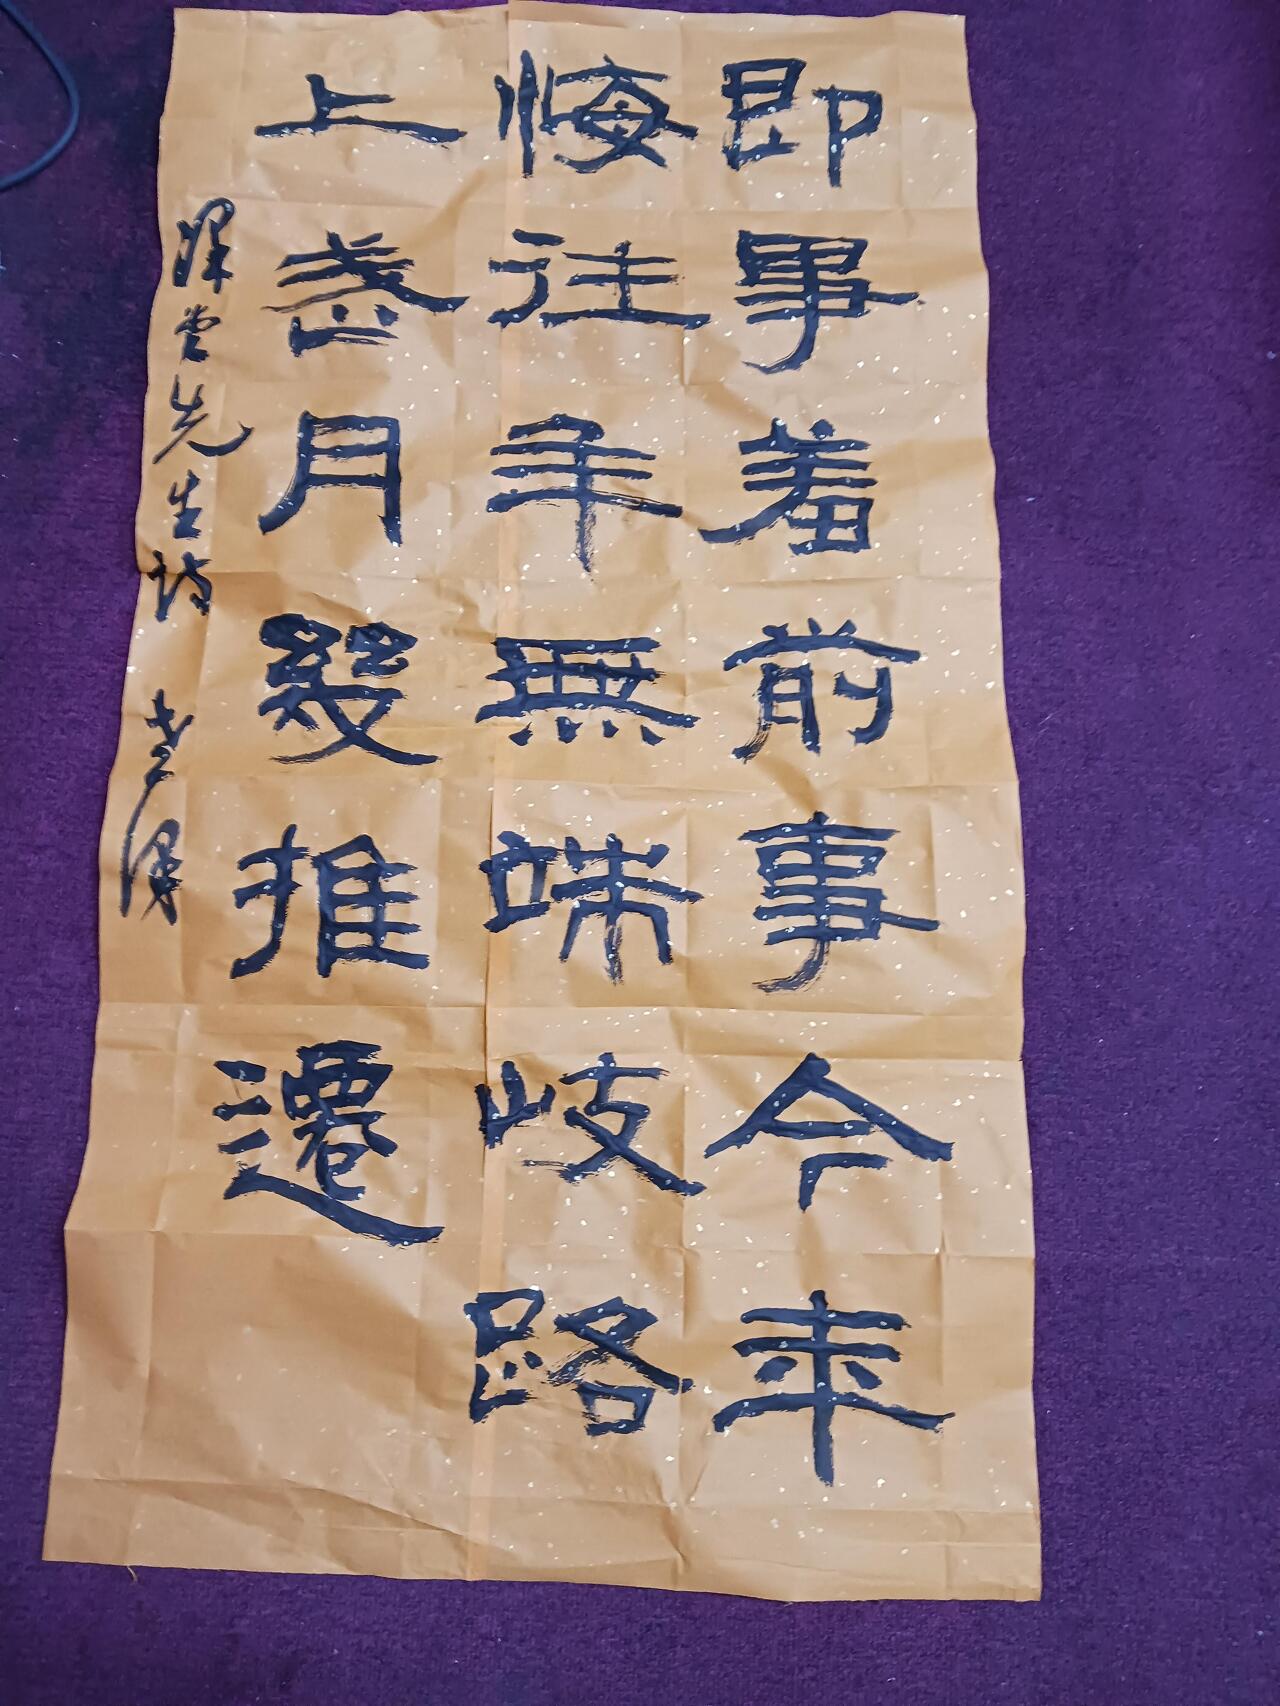 即事羞前事今年
悔往年無端岐路
上歲月叕推遷
先生詩